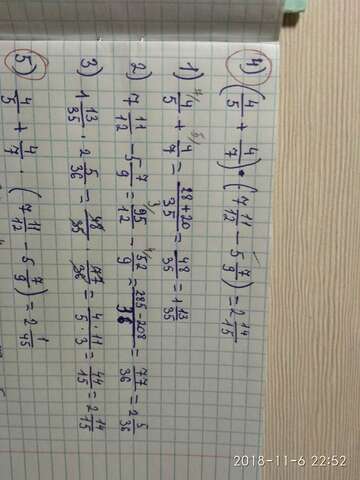 4) (4/5 + 4/7) · (7 11/12 - 5 7/9) = 2 14/15
1) 4/5 + 4/7 = 28+20/35 = 48/35 = 1 13/35
2) 7 11/12 - 5 7/9 = 95/12 - 52/9 = 285-208/36 = 77/36 = 2 5/36
3) 1 13/35 · 2 5/36 = 48/35 · 77/36 = 4·11/5·3 = 44/15 = 2 14/15
5) 4/5 + 4/7 · (7 11/12 - 5 7/9) = 2 1/45
2018-11-6 22:52